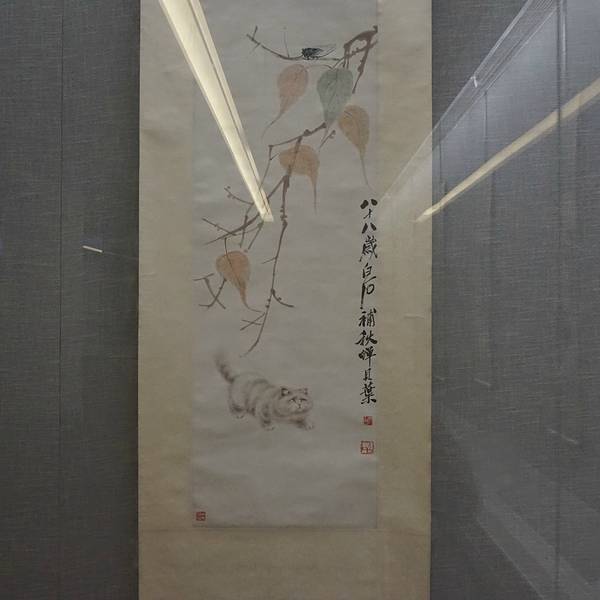 八十八歲白石補秋蟬貝葉